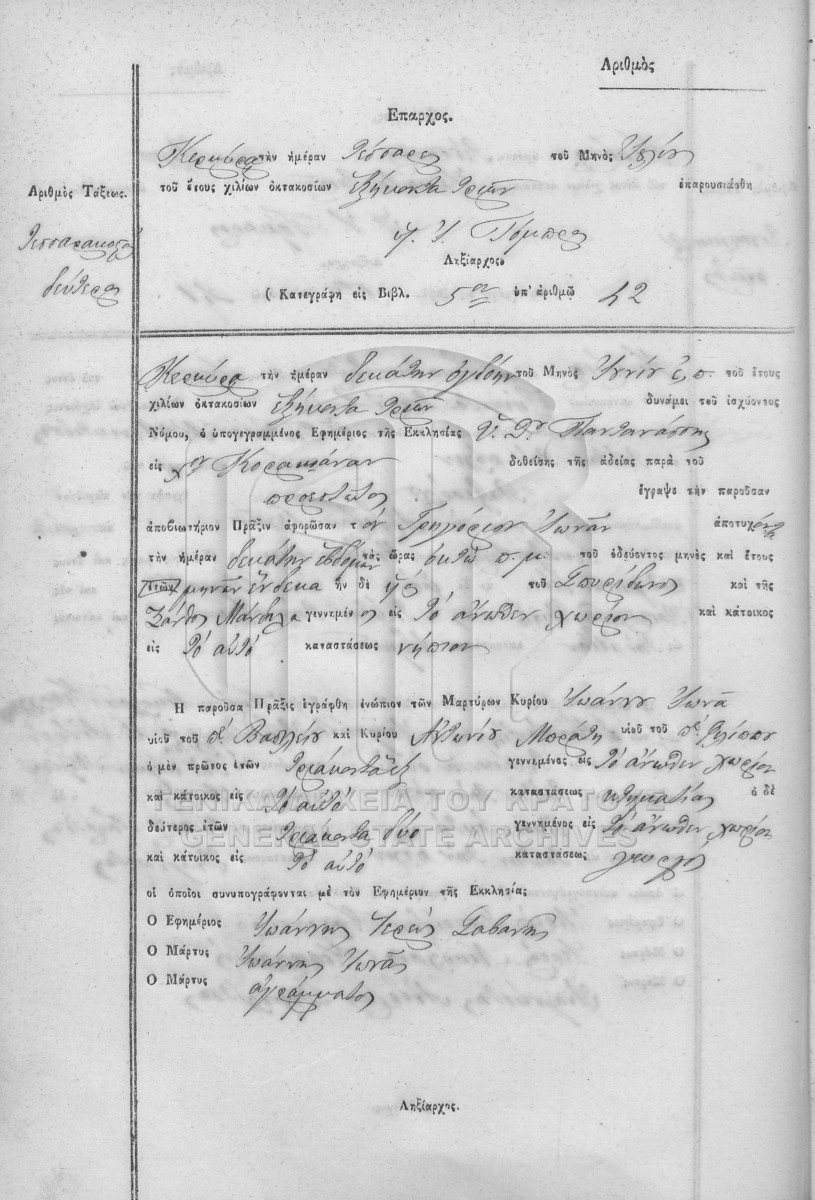 Ἀριθμὸς
Ἔπαρχος.
Κερκύρα τὴν ἡμέραν τέσσαρες τοῦ Μηνὸς Ἰουλίου
τοῦ ἔτους χιλίων ὀκτακοσίων ἑξήκοντα τριῶν ἐπαρουσιάσθη
Ἀριθμὸς Τάξεως.
Τεσσαρακοστὴ
δευτέρα
Ληξίαρχος
(Κατεγράφη εἰς Βιβλ. 5ον ὑπ' ἀριθμῷ 42
Κερκύρα τὴν ἡμέραν δεκάτην ὀγδόην τοῦ Μηνὸς Ἰουνίου ἐ.π. τοῦ ἔτους
χιλίων ὀκτακοσίων ἑξήκοντα τριῶν δυνάμει τοῦ ἰσχύοντος
Νόμου, ὁ ὑπογεγραμμένος Ἐφημέριος τῆς Ἐκκλησίας Παντανάσσης
εἰς χον Κορακιάναν δοθείσης τῆς ἀδείας παρὰ τοῦ
προεστῶτος ἔγραψε τὴν παροῦσαν
ἀποβιωτήριον Πρᾶξιν ἀφορῶσαν τὸν Γρηγόριον Ἰωνᾶν ἀποτυχόντα
τὴν ἡμέραν δεκάτην ἑβδόμην τὰς ὥρας ὀκτὼ π.μ. τοῦ ὁδεύοντος μηνὸς καὶ ἔτους
ἐτῶν μηνῶν ἕνδεκα ἦν δὲ υἱὸς τοῦ Σπυρίδωνος καὶ τῆς
Ξάνθος γεννημένος εἰς τὸ ἄνωθεν χωρίον καὶ κάτοικος
εἰς τὸ αὐτὸ καταστάσεως νήπιον
Ἡ παροῦσα Πρᾶξις ἐγράφθη ἐνώπιον τῶν Μαρτύρων Κυρίου Ἰωάννου Ἰωνᾶ
υἱοῦ τοῦ πτ Βασιλείου καὶ Κυρίου Ἀντωνίου Μπράτη υἱοῦ τοῦ πτ Φιλίππου
ὁ μὲν πρῶτος ἐτῶν τριάκοντα ἓξ γεννημένος εἰς τὸ ἄνωθεν χωρίον
καὶ κάτοικος εἰς τὸ αὐτὸ καταστάσεως κτηματίας ὁ δὲ
δεύτερος ἐτῶν τριάκοντα δύο γεννημένος εἰς τὸ ἄνωθεν χωρίον
καὶ κάτοικος εἰς τὸ αὐτὸ καταστάσεως γεωργὸς
οἱ ὁποῖοι συνυπογράφονται μὲ τὸν Ἐφημέριον τῆς Ἐκκλησίας
Ὁ Ἐφημέριος Ἰωάννης Ἱερεὺς Σαβανῆς
Ὁ Μάρτυς Ἰωάννης Ἰωνᾶς
Ὁ Μάρτυς ἀγράμματος
Ληξίαρχος.
ΓΕΝΙΚΑ ΑΡΧΕΙΑ ΤΟΥ ΚΡΑΤΟΥΣ
GENERAL STATE ARCHIVES